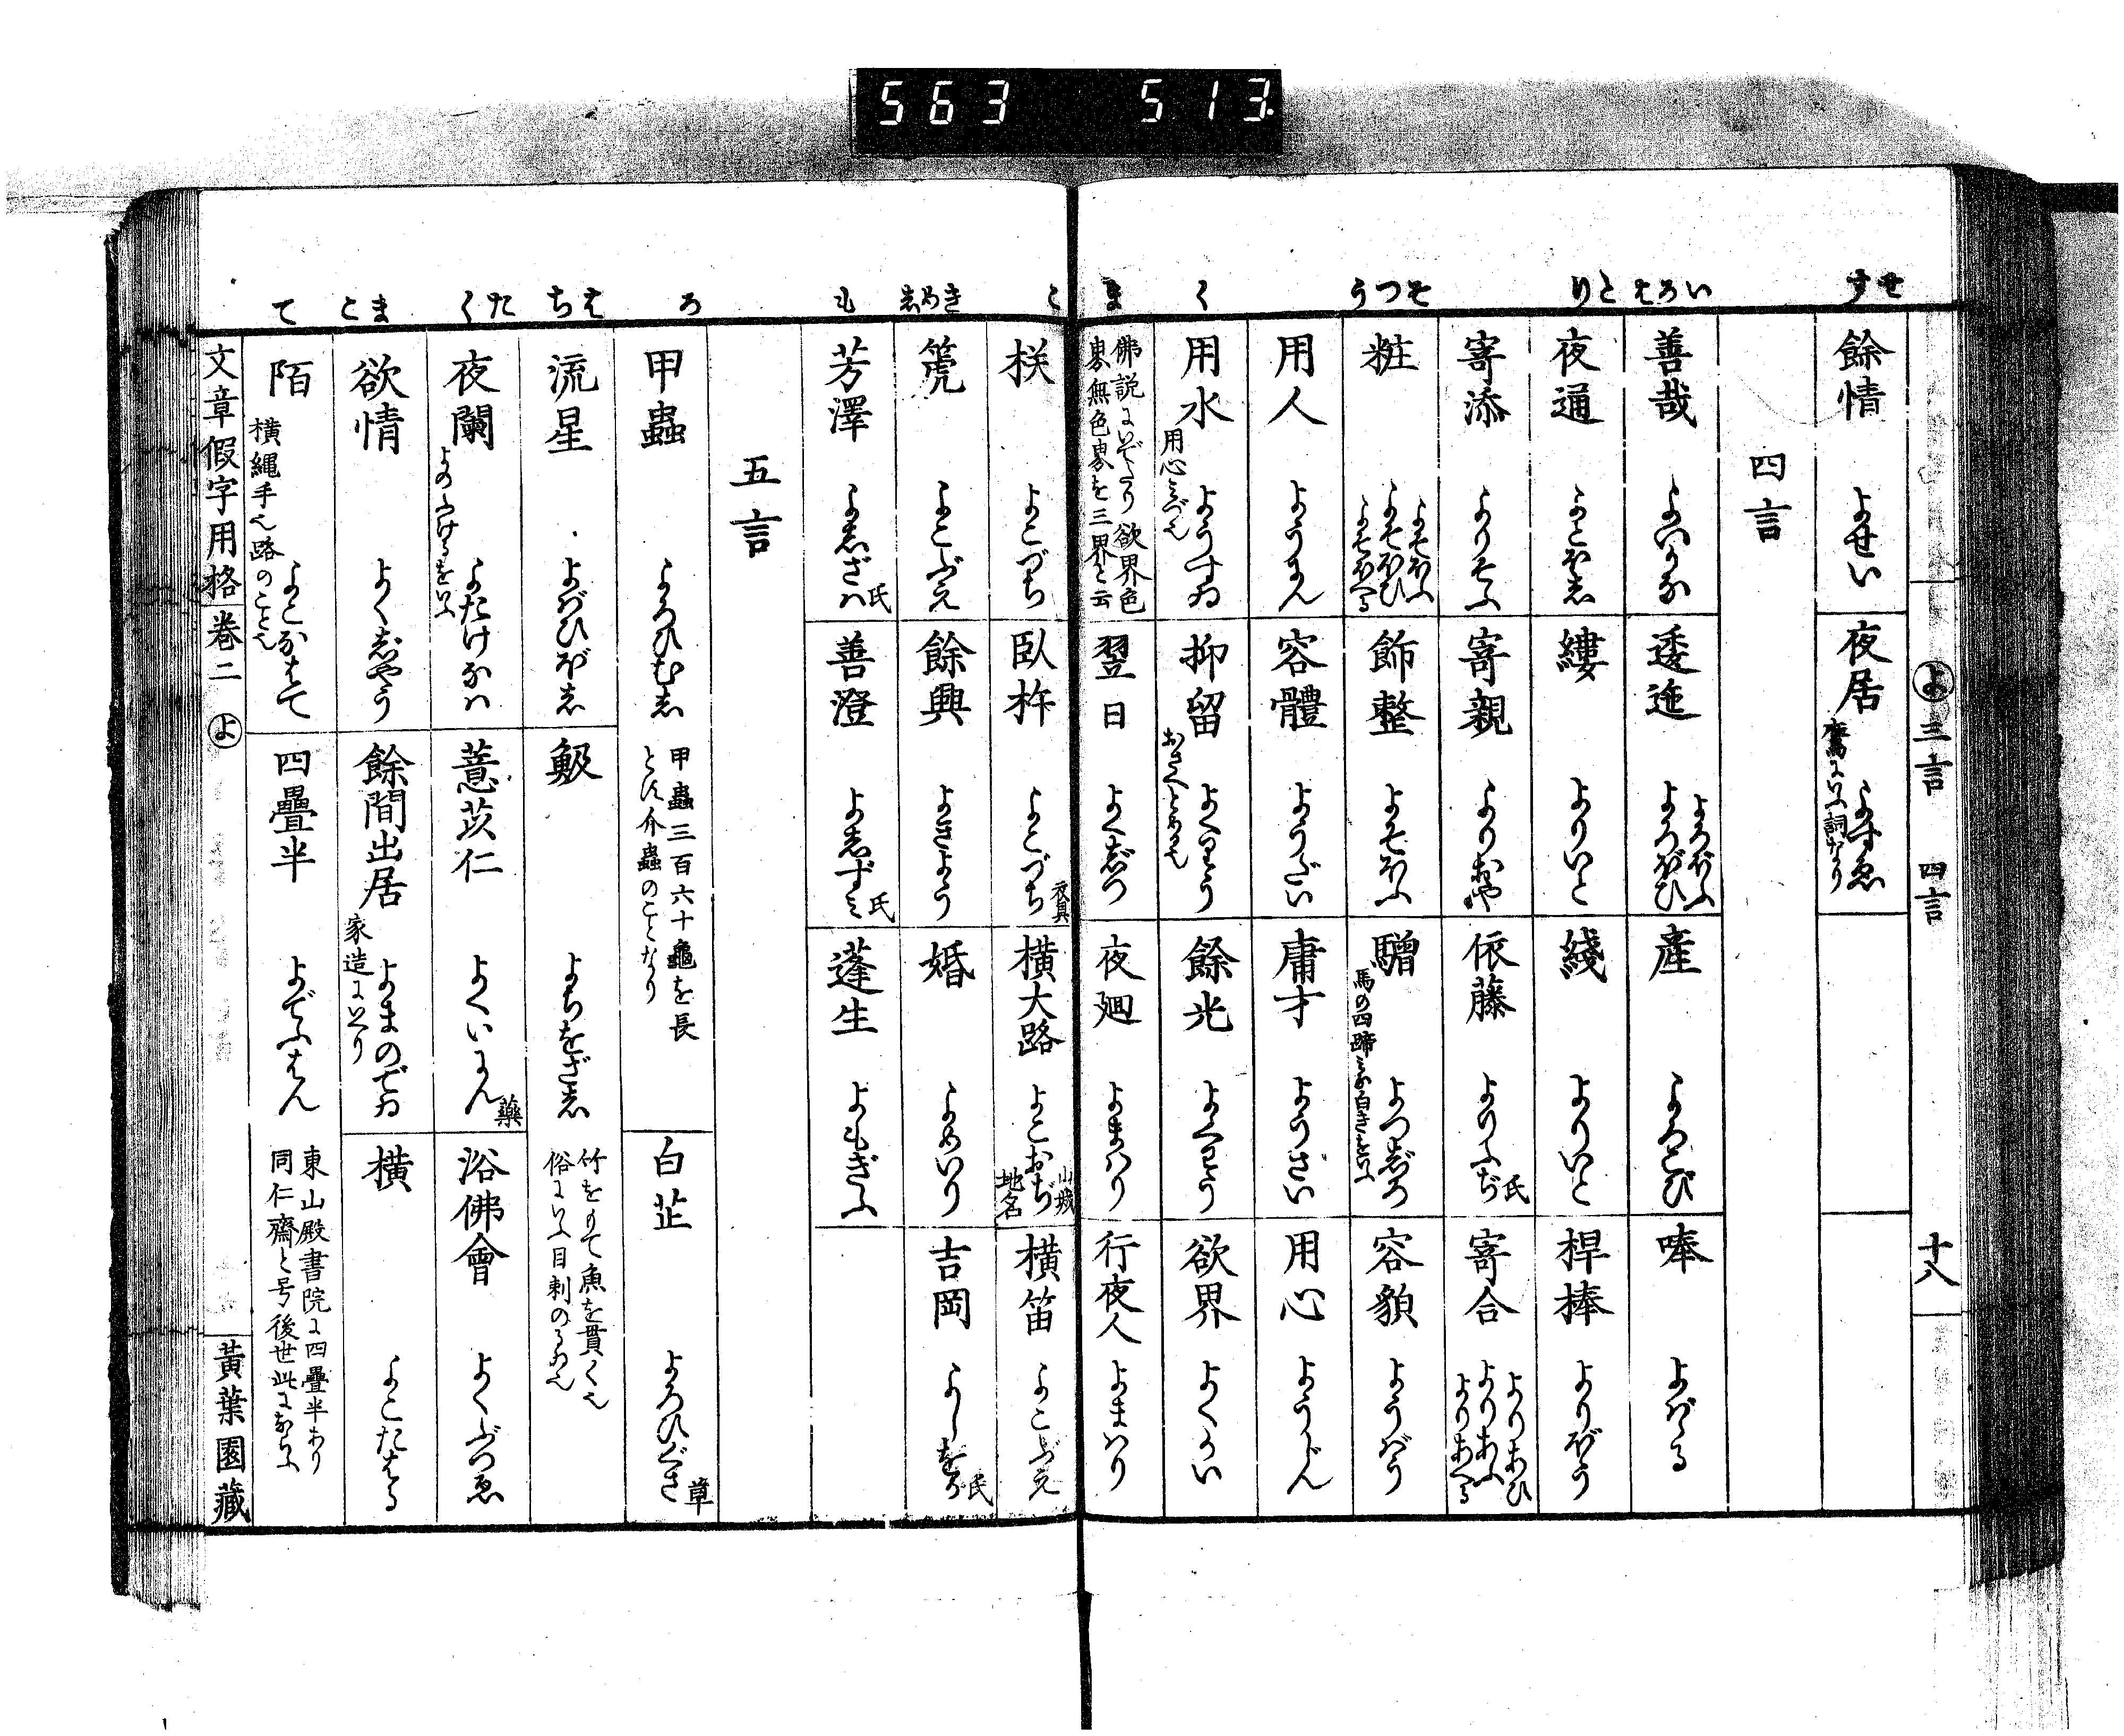 563 513
せす
いろはとり
そつう
く
ま
こ
きめし
も
ろ
はち
たく
まと
て
よ 三言 四言 十八
餘情 よせい
夜居 よすゑ 鷹にいふ詞なり
四言
善哉 よいかな
逶迤 よろぼふ よろぼひ
產 よろこび
㖹 よばる
夜通 よとほし
縷 よりいと
綫 よりいと
桿捧 よりばう
寄添 よりそふ
寄親 よりおや
依藤 よりふぢ 氏
寄合 よりあひ よりあふ よりあへる
粧 よそほふ よそほひ よそほへる
飾整 よそほふ
驓 よつじろ 馬の四蹄みな白きをいふ
容貌 ようばう
用人 ようにん
容體 ようだい
庸才 ようさい
用心 ようじん
用水 ようすゐ 用心みづ也
抑留 よくりう おさへとめる也
餘光 よくわう
欲界 よくかい
佛説にいでたり 欲界色
界無色界を三界と云
翌日 よくじつ
夜廻 よまはり
行夜人 よまはり
栚 よこづち
臥杵 よこづち
橫大路 よこおぢ 山城地名
橫笛 よこぶえ
篪 よこぶえ
餘興 よきよう
婚 よめいり
吉岡 よしをか 氏
芳澤 よしざは 氏
善澄 よしずみ 氏
蓬生 よもぎふ
五言
甲蟲 よろひむし
甲蟲三百六十龜を長
とす介蟲のことなり
白芷 よろひぐさ 草
流星 よばひぼし
鮁 よちをざし
竹をもて魚を貫く也
俗にいふ目刺のるゐ也
夜闌 よたけなは よのふけるをいふ
薏苡仁 よくいにん 藥
浴佛會 よくぶつゑ
欲情 よくじやう
餘間出居 よまのでゐ 家造にいへり
橫 よこたはる
陌 よこなはて 橫繩手也路のこと也
四疊半 よでふはん
東山殿書院に四疊半あり
同仁齋と号後世此にならふ
文章假字用格卷二 よ 黃葉園藏